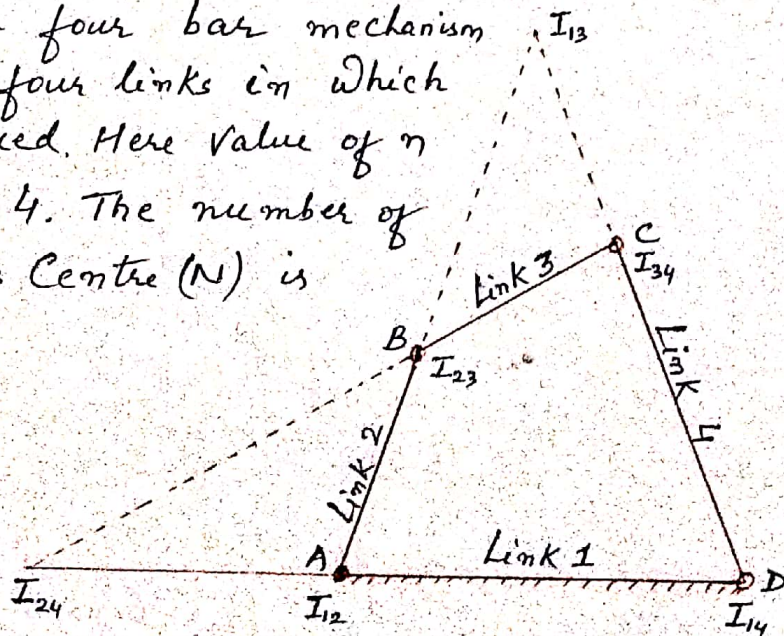 four bar mechanism
four links in which
Here Value of n
4. The number of
Centre (N) is
I13
C
I34
Link 3
B
I23
Link 2
Link 4
A
Link 1
D
I24
I12
I14